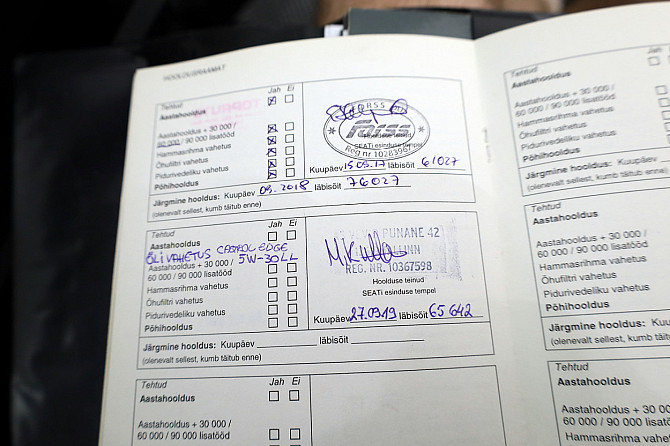 HOOLDUSRAAMAT
Tehtud Jah Ei
Aastahooldus
Aastahooldus + 30 000 /
60 000 / 90 000 lisatööd
Hammasrihma vahetus
Õhufiltri vahetus
Pidurivedeliku vahetus
Põhihooldus
Reg nr
SEATi esinduse tempel
Kuupäev 15.09.17 läbisõit 61027
Järgmine hooldus: Kuupäev 09.2018 läbisõit 76027
(olenevalt sellest, kumb täitub enne)
Tehtud Jah Ei
Aastahooldus
ÕLIVAHETUS CASTROL EDGE
5W-30LL
Aastahooldus + 30 000 /
60 000 / 90 000 lisatööd
Hammasrihma vahetus
Õhufiltri vahetus
Pidurivedeliku vahetus
Põhihooldus
PUNANE 42
REG. NR. 10367598
Hoolduse teinud
SEATi esinduse tempel
Kuupäev 27.09.19 läbisõit 65642
Järgmine hooldus: Kuupäev läbisõit
(olenevalt sellest, kumb täitub enne)
Tehtud Jah Ei
Aastahooldus
Aastahooldus + 30 000 /
60 000 / 90 000 lisatööd
Tehtud
Aastahooldus
Aastahooldus + 30 000 /
60 000 / 90 000 lisatööd
Hammasrihma vahetus
Õhufiltri vahetus
Pidurivedeliku vahetus
Põhihooldus
Järgmine hooldus: Kuupäev
(olenevalt sellest, kumb täitub enne)
Tehtud
Aastahooldus
Aastahooldus + 30 000 /
60 000 / 90 000 lisatööd
Hammasrihma vahetus
Õhufiltri vahetus
Pidurivedeliku vahetus
Põhihooldus
Järgmine hooldus: Kuupäev
(olenevalt sellest, kumb täitub enne)
Tehtud
Aastahooldus
Aastahooldus + 30 000 /
60 000 / 90 000 lisatööd
Hammasrihma vahetus